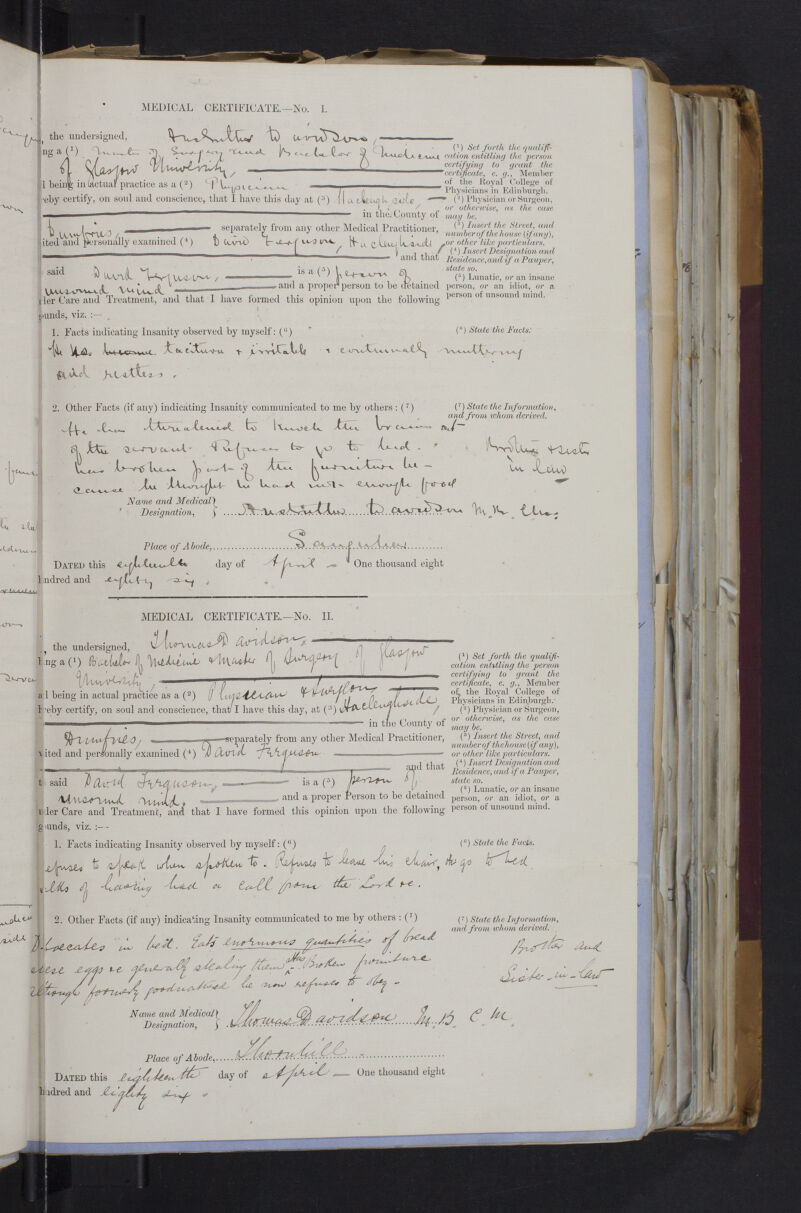 MEDICAL CERTIFICATE.—No. I.
, the undersigned, Anstruther Davidson,
ng a (¹) Master of Surgery and Bachelor of Medicine
of Glasgow University,
d being in actual practice as a (²) Physician
eby certify, on soul and conscience, that I have this day at (³) Hacleughside,
in the County of
Dumfries, separately from any other Medical Practitioner,
ited and personally examined (⁴) David Ferguson, Hacleughside
and that
said David Ferguson, is a (⁵) person of
unsound mind and a proper person to be detained
der Care and Treatment, and that I have formed this opinion upon the following
ounds, viz. :—
(¹) Set forth the qualifi-
cation entitling the person
certifying to grant the
certificate, e. g., Member
of the Royal College of
Physicians in Edinburgh.
(²) Physician or Surgeon,
or otherwise, as the case
may be.
(³) Insert the Street, and
number of the house (if any),
or other like particulars.
(⁴) Insert Designation and
Residence, and if a Pauper,
state so.
(⁵) Lunatic, or an insane
person, or an idiot, or a
person of unsound mind.
1. Facts indicating Insanity observed by myself: (⁶)
(⁶) State the Facts.
He has become taciturn & irritable & continually muttering
and restless.
2. Other Facts (if any) indicating Insanity communicated to me by others: (⁷)
(⁷) State the Information,
and from whom derived.
He has threatened to knock the brains out
of the servant. Refuses to go to bed.
has broken part of the furniture be-
cause he thought he had not enough food
Brother & sister
in law
Name and Medical
Designation, Anstruther Davidson M.B. Chm.
Place of Abode, Sanquhar
DATED this eighteenth day of April One thousand eight
hundred and eighty six.
MEDICAL CERTIFICATE.—No. II.
, the undersigned, Thomas Davidson,
ing a (¹) Bachelor of Medicine & Master of Surgery of Glasgow
University,
d being in actual practice as a (²) Physician & Surgeon,
eby certify, on soul and conscience, that I have this day, at (³) Hacleughside,
in the County of
Dumfries, separately from any other Medical Practitioner,
ited and personally examined (⁴) David Ferguson
and that
said David Ferguson, is a (⁵) person of
unsound mind, and a proper Person to be detained
der Care and Treatment, and that I have formed this opinion upon the following
ounds, viz. :—
(¹) Set forth the qualifi-
cation entitling the person
certifying to grant the
certificate, e. g., Member
of the Royal College of
Physicians in Edinburgh.
(²) Physician or Surgeon,
or otherwise, as the case
may be.
(³) Insert the Street, and
number of the house (if any),
or other like particulars.
(⁴) Insert Designation and
Residence, and if a Pauper,
state so.
(⁵) Lunatic, or an insane
person, or an idiot, or a
person of unsound mind.
1. Facts indicating Insanity observed by myself: (⁶)
(⁶) State the Facts.
efuses to speak when spoken to. Refuses to leave his chair, or go to bed.
of having had a call from the Lord &c.
2. Other Facts (if any) indicating Insanity communicated to me by others: (⁷)
(⁷) State the Information,
and from whom derived.
Defoecates in bed. Eats enormous quantities of bread
cheese eggs &c generally stealing them. Has Broken furniture
although formerly goodnatured he now refuses to obey.
Brother and
Sister-in-law
Name and Medical
Designation, Thomas Davidson M.B. C.M.
Place of Abode, Thornhill
DATED this eighteenth day of April One thousand eight
hundred and eighty six.